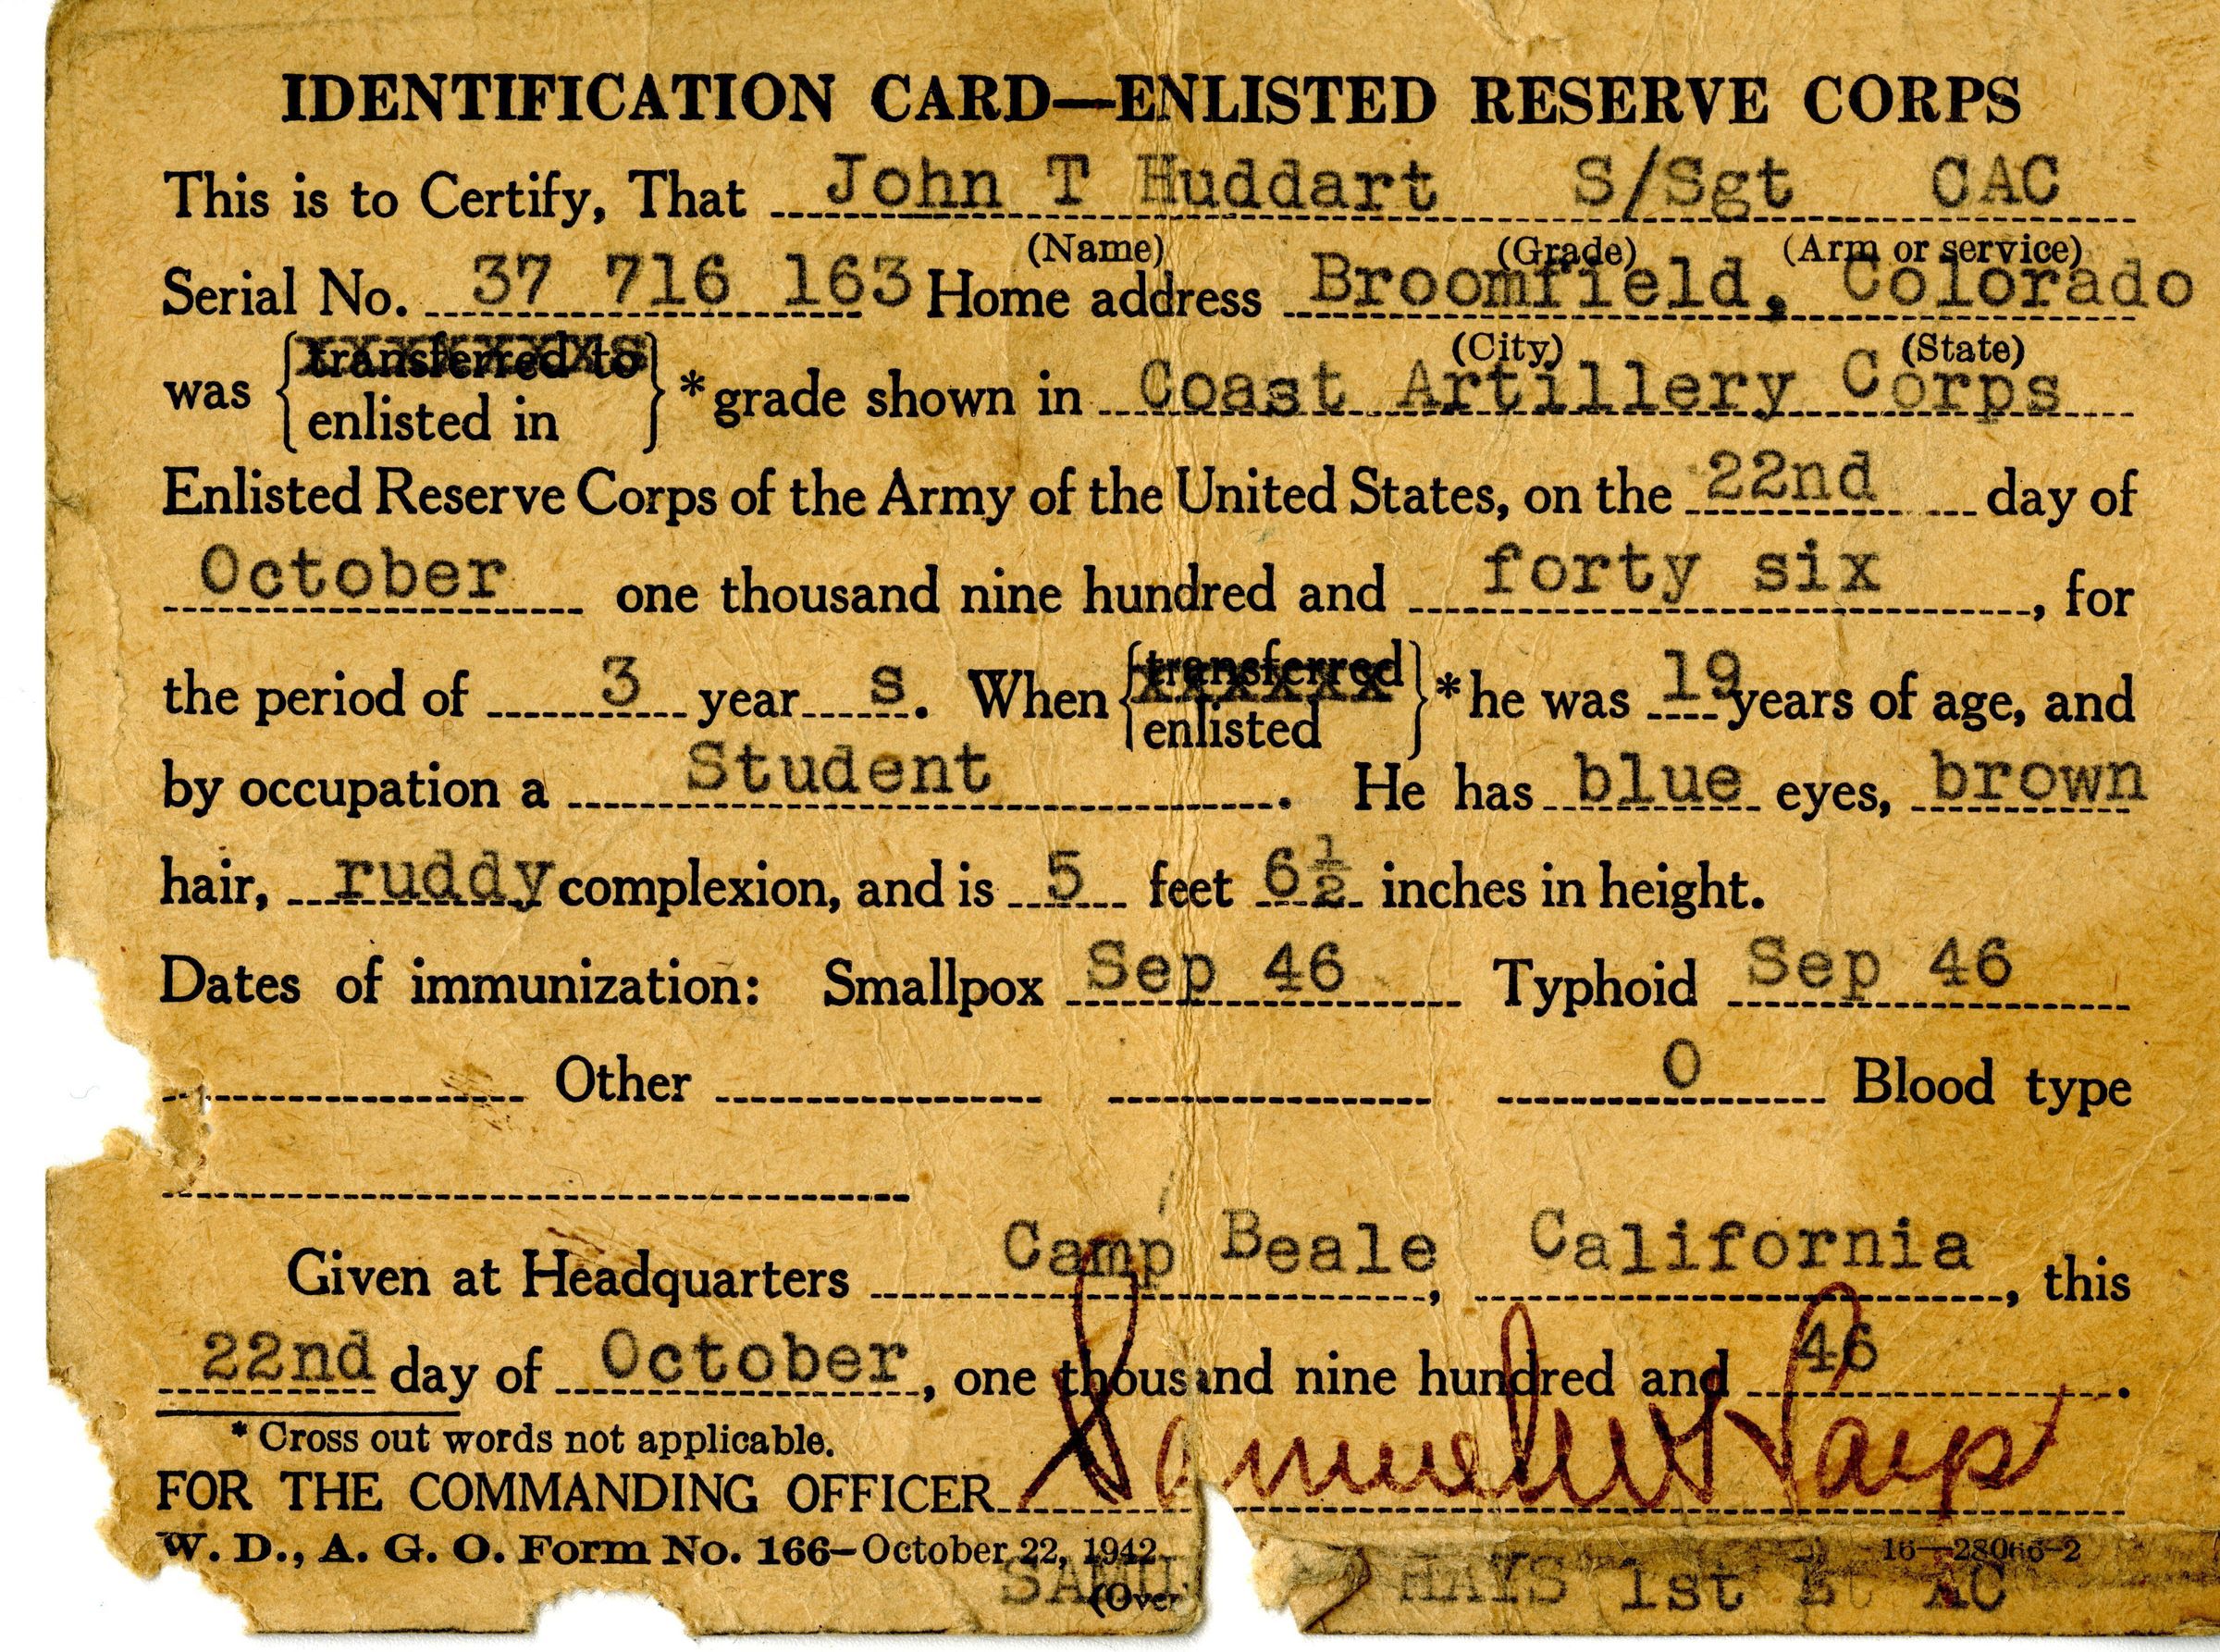 IDENTIFICATION CARD—ENLISTED RESERVE CORPS
This is to Certify, That John T Huddart S/Sgt CAC
(Name) (Grade) (Arm or service)
Serial No. 37 716 163 Home address Broomfield, Colorado
(City) (State)
was { transferred to
enlisted in } * grade shown in Coast Artillery Corps
Enlisted Reserve Corps of the Army of the United States, on the 22nd day of
October one thousand nine hundred and forty six, for
the period of 3 years. When { transferred
enlisted } * he was 19 years of age, and
by occupation a Student. He has blue eyes, brown
hair, ruddy complexion, and is 5 feet 6½ inches in height.
Dates of immunization: Smallpox Sep 46 Typhoid Sep 46
Other O Blood type
Given at Headquarters Camp Beale, California, this
22nd day of October, one thousand nine hundred and 46.
* Cross out words not applicable.
FOR THE COMMANDING OFFICER Samuel
W. D., A. G. O. Form No. 166—October 22, 1942 16—28066-2
HAYS 1st Lt AC
(Over